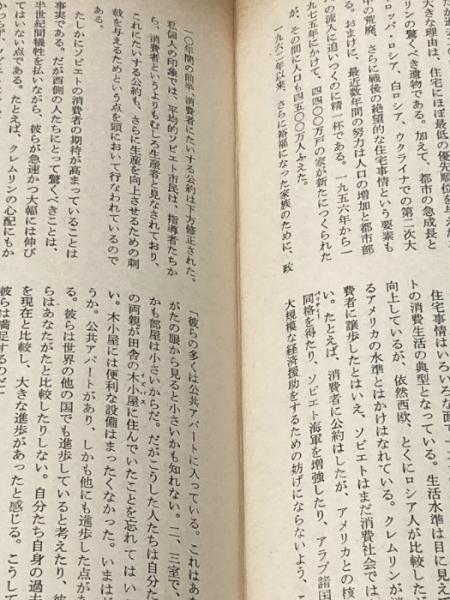 大きな理由は、住宅にほぼ最低の優先順位を与えた
の驚くべき遺物である。加えて、都市の急成長と
ロッパ・ロシア、白ロシア、ウクライナでの第二次大
中の荒廃、さらに戦後の絶望的な住宅事情という要素も
る。おまけに、最近数年間の努力は人口の増加と都市部
の流入に追いつくのに精一杯である。一九五六年から一
九七五年にかけて、四四〇〇万戸の家が新たにつくられた
が、その間に人口も四五〇〇万人ふえた。
一九六〇年以来、さらに裕福になった家族のために、政
住宅事情はいろいろな面
トの消費生活の典型となっている。生活水準は目に見えて
向上しているが、依然西欧、とくにロシア人が比較した
るアメリカの水準とはかけはなれている。クレムリンが消
費者に譲歩したとはいえ、ソビエトはまだ消費社会では
い。たとえば、消費者に公約はしたが、アメリカとの核
同格を得たり、ソビエト海軍を増強したり、アラブ諸国
大規模な経済援助をするための妨げにならないよう、こ
一〇年間の前半、消費者にたいする公約は下方修正された。
私個人の印象では、平均的ソビエト市民は、指導者たちか
ら、消費者というよりもむしろ生産者と見なされており、
これにたいする公約も、さらに生産を向上させるための刺
戟を与えるためという点を頭において行なわれているので
ある。
たしかにソビエトの消費者の期待が高まっていることは
事実である。だが西側の人たちにとって驚くべきことは、
半世紀間犠牲を払いながら、彼らが急速かつ大幅には伸び
てはいない点である。たとえば、クレムリンの心配にもか
「彼らの多くは公共アパートに入っている。これはあな
がたの眼から見ると小さいかも知れない。二、三室で、
かも部屋は小さいからだ。だがこうした人たちは自分た
の両親が田舎の木小屋に住んでいたことを忘れてはい
い。木小屋には便利な設備はまったくなかった。いまは
うか。公共アパートがあり、しかも他にも進歩した点があ
る。彼らは世界の他の国でも進歩していると考えたり、
らはあなたがたと比較したりしない。自分たち自身の過去
を現在と比較し、大きな進歩があったと感じる。こうして